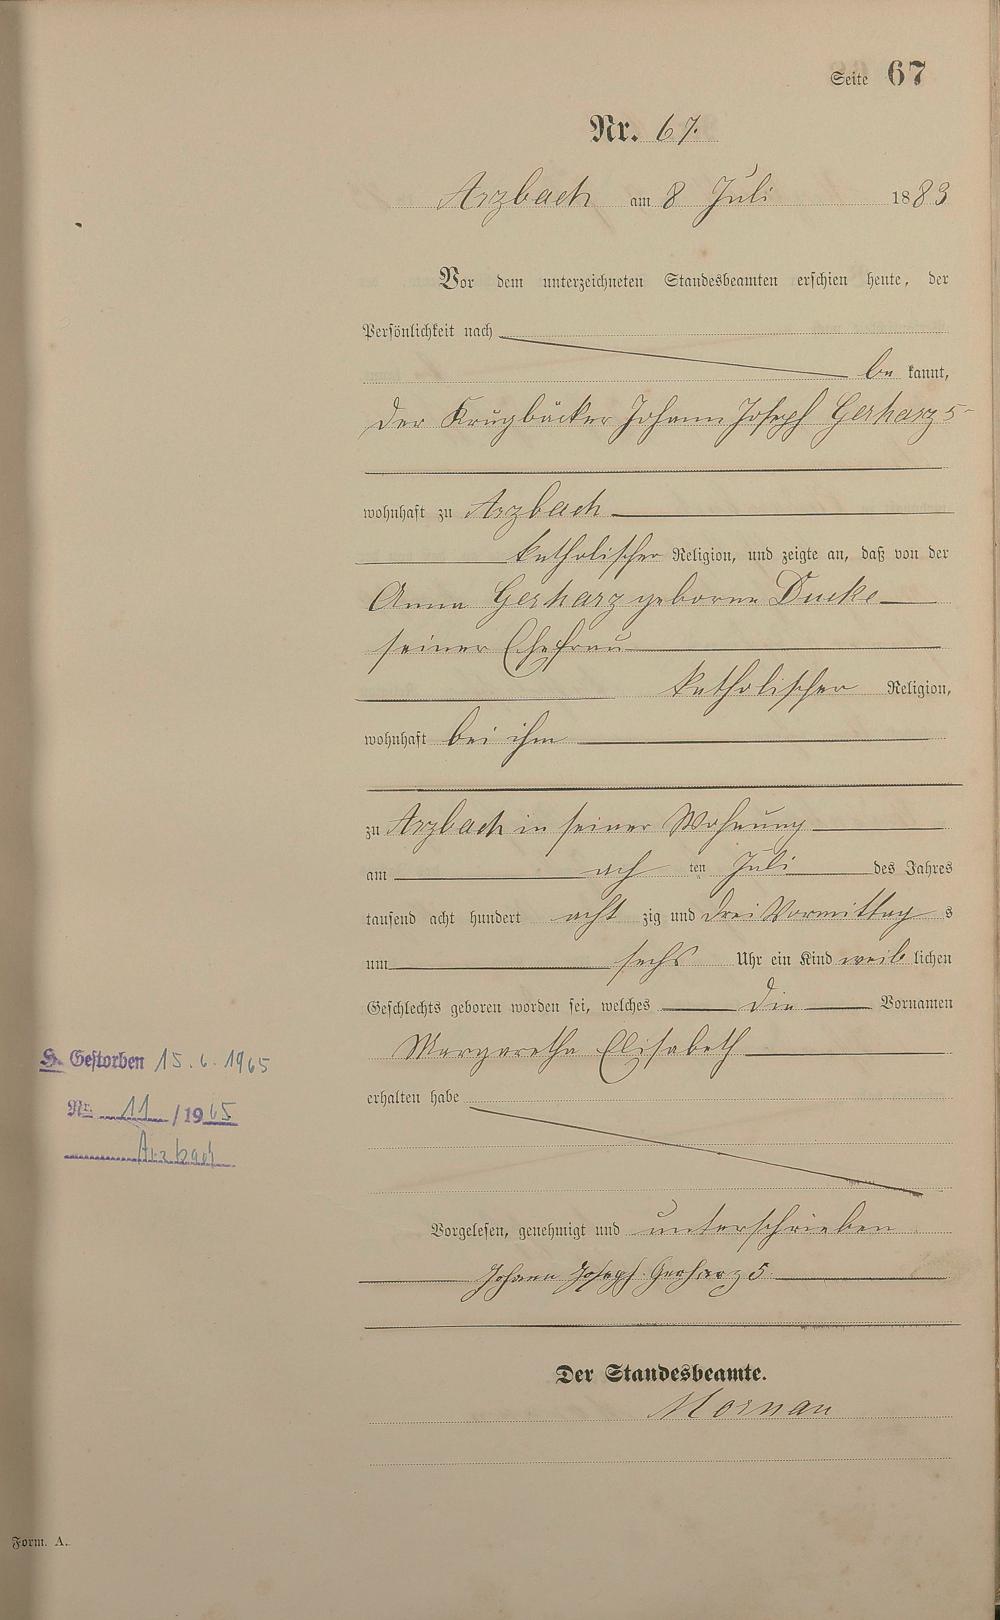 Seite 67
Nr. 67.
Arzbach am 8 Juli 1883
Vor dem unterzeichneten Standesbeamten erschien heute, der
Persönlichkeit nach
be kannt,
der Krugbäcker Johann Joseph Gerharz 5
wohnhaft zu Arzbach
katholischer Religion, und zeigte an, daß von der
Anna Gerharz geborne Ducke
seiner Ehefrau
katholischer Religion,
wohnhaft bei ihm
zu Arzbach in seiner Wohnung
am ach ten Juli des Jahres
tausend acht hundert acht zig und drei Vormittag s
um sechs Uhr ein Kind weib lichen
Geschlechts geboren worden sei, welches die Vornamen
Margaretha Elisabeth
erhalten habe
Vorgelesen, genehmigt und unterschrieben
Johann Joseph Gerharz 5
Der Standesbeamte.
Mornau
Gestorben 15.6.1965
Nr. 11 /1965
Arzbach
Form. A.